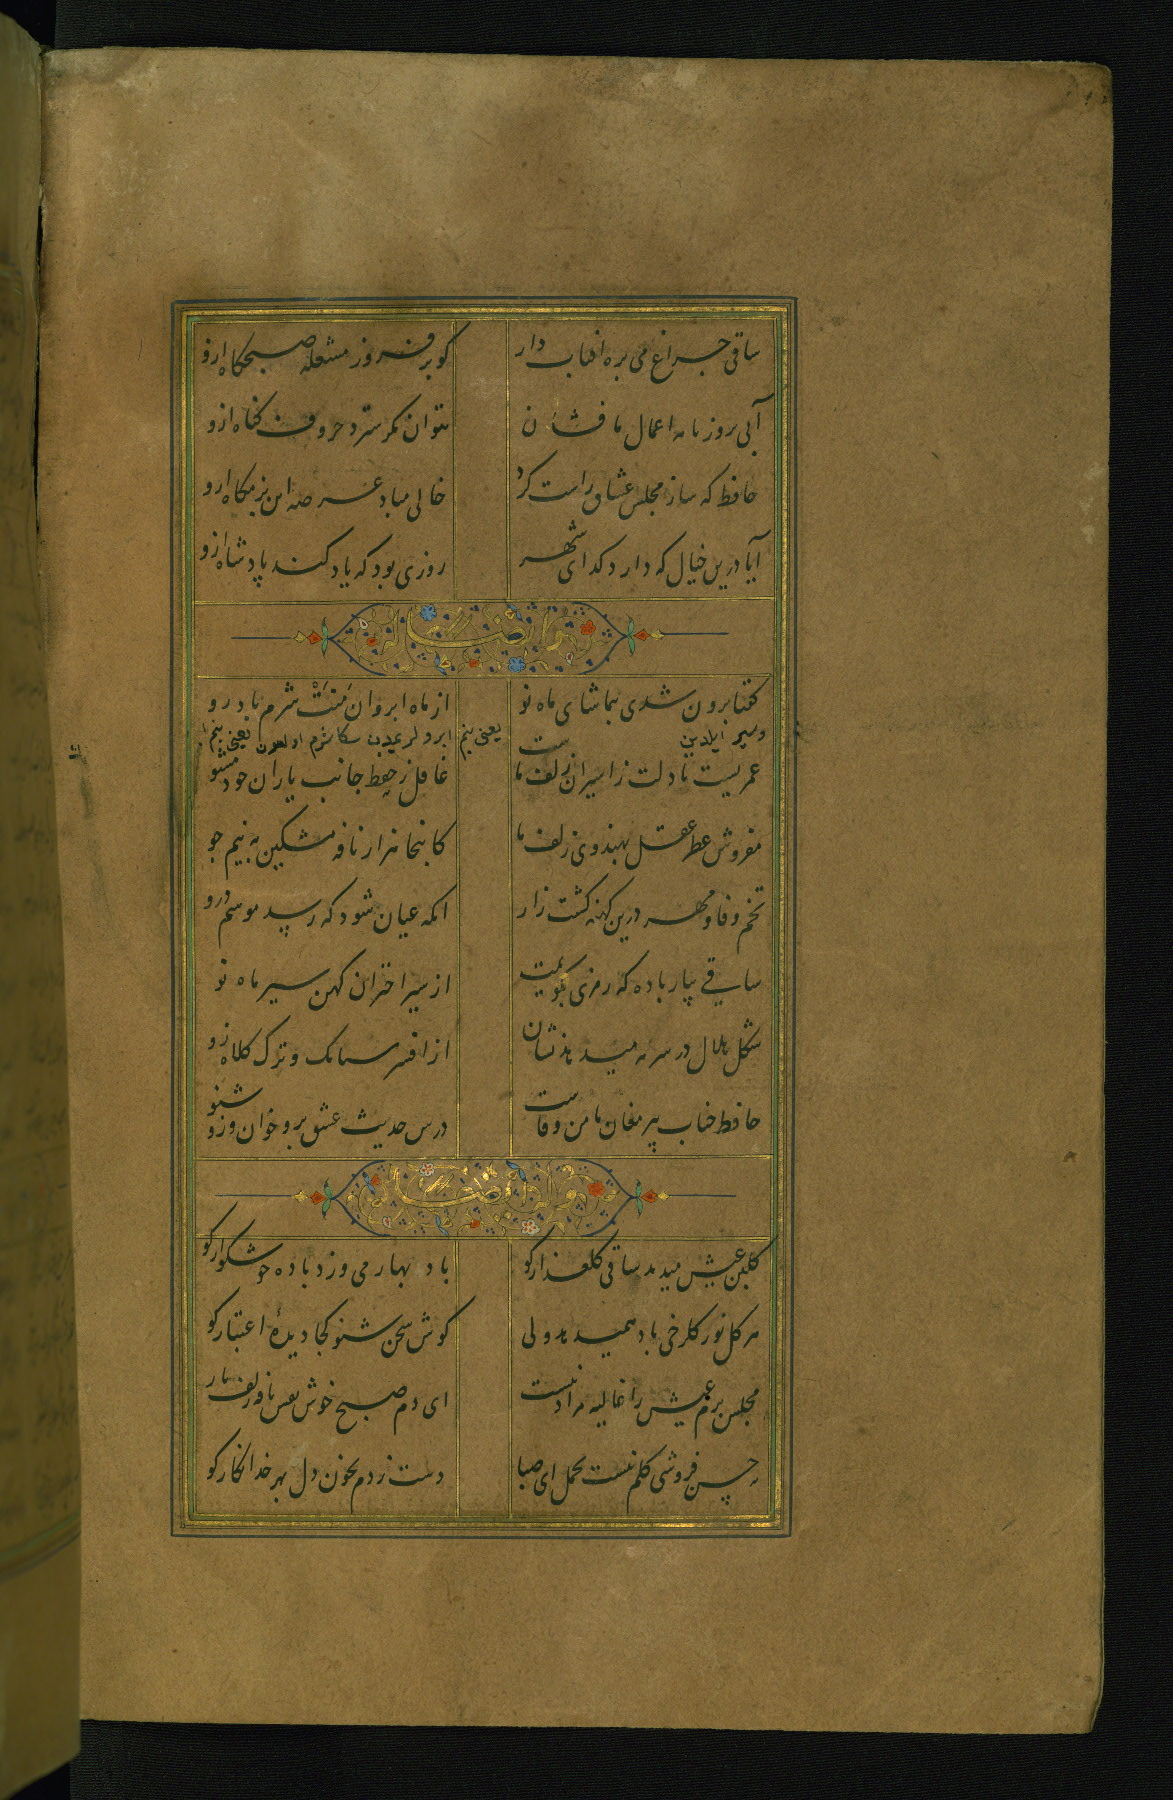 ساقی چراغ می بره افتاب دار کو برفروز مشعله صبحکاه ازو
آبی بروزنامه اعمال ما فشان بتوان مکر سترد حروف کناه ازو
حافظ که ساز مجلس عشاق راست کرد خالی مباد عرصه این بزمکاه ازو
آیا درین خیال که دارد کدای شهر روزی بود که یاد کند پادشاه ازو
وله ایضا
کفتا برون شدی بتماشای ماه نو از ماه ابروان منت شرم باد رو
یعنی بنم ابرولریمدن سکا شرم اولسون
عمریست تا دلت ز اسیران زلف ما ست غافل ز حفظ جانب یاران خود مشو
مفروش عطر عقل بهندوی زلف ما کانجا هزار نافه مشکین به نیم جو
تخم وفا و مهر درین کهنه کشت زار انکه عیان شود که رسد موسم درو
ساقی بیار باده که رمزی بکویمت از سیر اختران کهن سیر ماه نو
شکل هلال در سر مه میدهد نشان از افسر سیامک و ترک کلاه زو
حافظ جناب پیر مغان مامن وفاست درس حدیث عشق برو خوان وزو شنو
وله ایضا
کلبن عیش میدمد ساقی کلعذار کو باد بهار می وزد باده خوشکوار کو
هر کل نو ز کلرخی یاد همیدهد ولی کوش سخن شنو کجا دیدهٔ اعتبار کو
مجلس بزم عیش را غالیه مراد نیست ای دم صبح خوش نفس نافه زلف یار
حسن فروشی کلم نیست تحمل ای صبا دست زدم بخون دل بهر خدا نکار کو